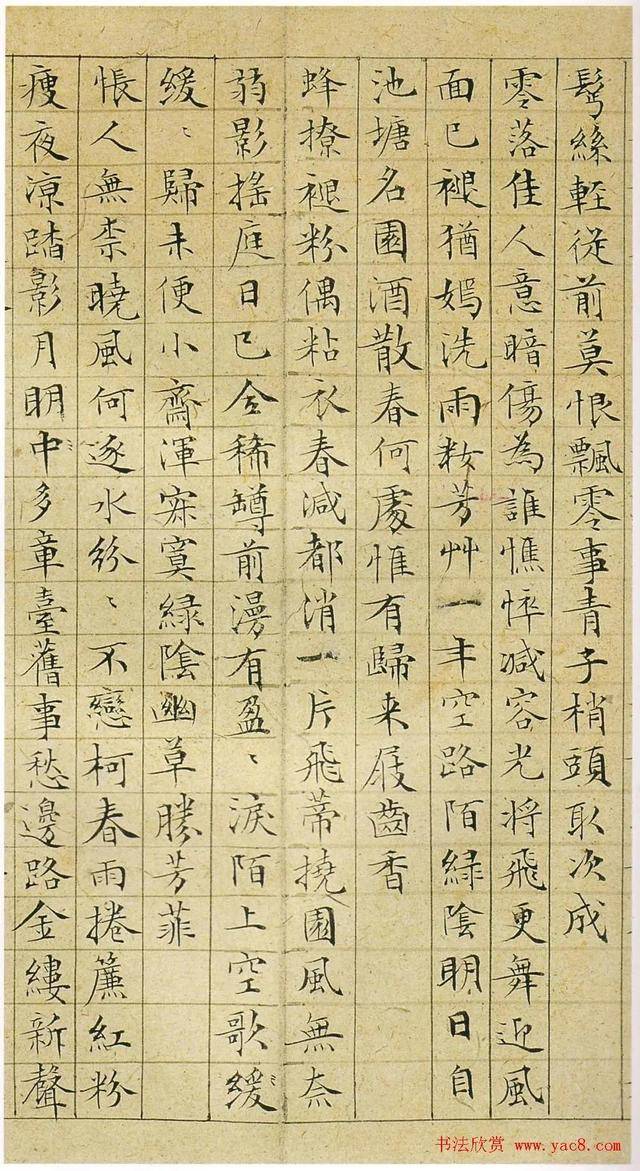 鬢絲輕從前莫恨飄零事青子梢頭取次成
零落佳人意暗傷為誰憔悴減容光將飛更舞迎風
面已褪猶嫣洗雨妝芳艸一年空路陌綠陰明日自
池塘名園酒散春何處惟有歸来屐齒香
蜂撩褪粉偶粘衣春減都消一片飛蒂撓園風無奈
弱影搖庭日已全稀罇前漫有盈〻淚陌上空歌緩
緩〻歸未便小齋渾寂寞綠陰幽草勝芳菲
悵人無柰曉風何逐水紛〻不戀柯春雨捲簾紅粉
瘦夜涼踏影月明中多章臺舊事愁邊路金縷新聲
书法欣赏 www.yac8.com